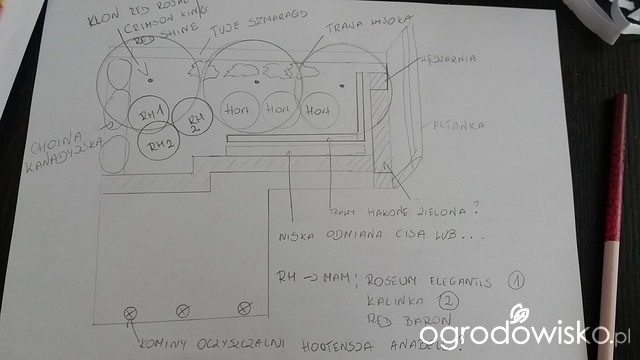 KLON RED ROYAL
CRIMSON KING
RED SHINE
TUJE SZMARAGD
TRAWA WYSOKA
WĘDZARNIA
ALTANKA
CHOINA
KANADYJSKA
RH1
RH
2
RH2
Hort
Hort
Hort
TRAWY HAKONE ZIELONA?
NISKA ODMIANA CISA LUB...
RH → MAM; ROSEUM ELEGANTIS 1
KALINKA 2
RED BARON
KOMINY OCZYSZCZALNI HORTENSJA
ogrodowisko.pl